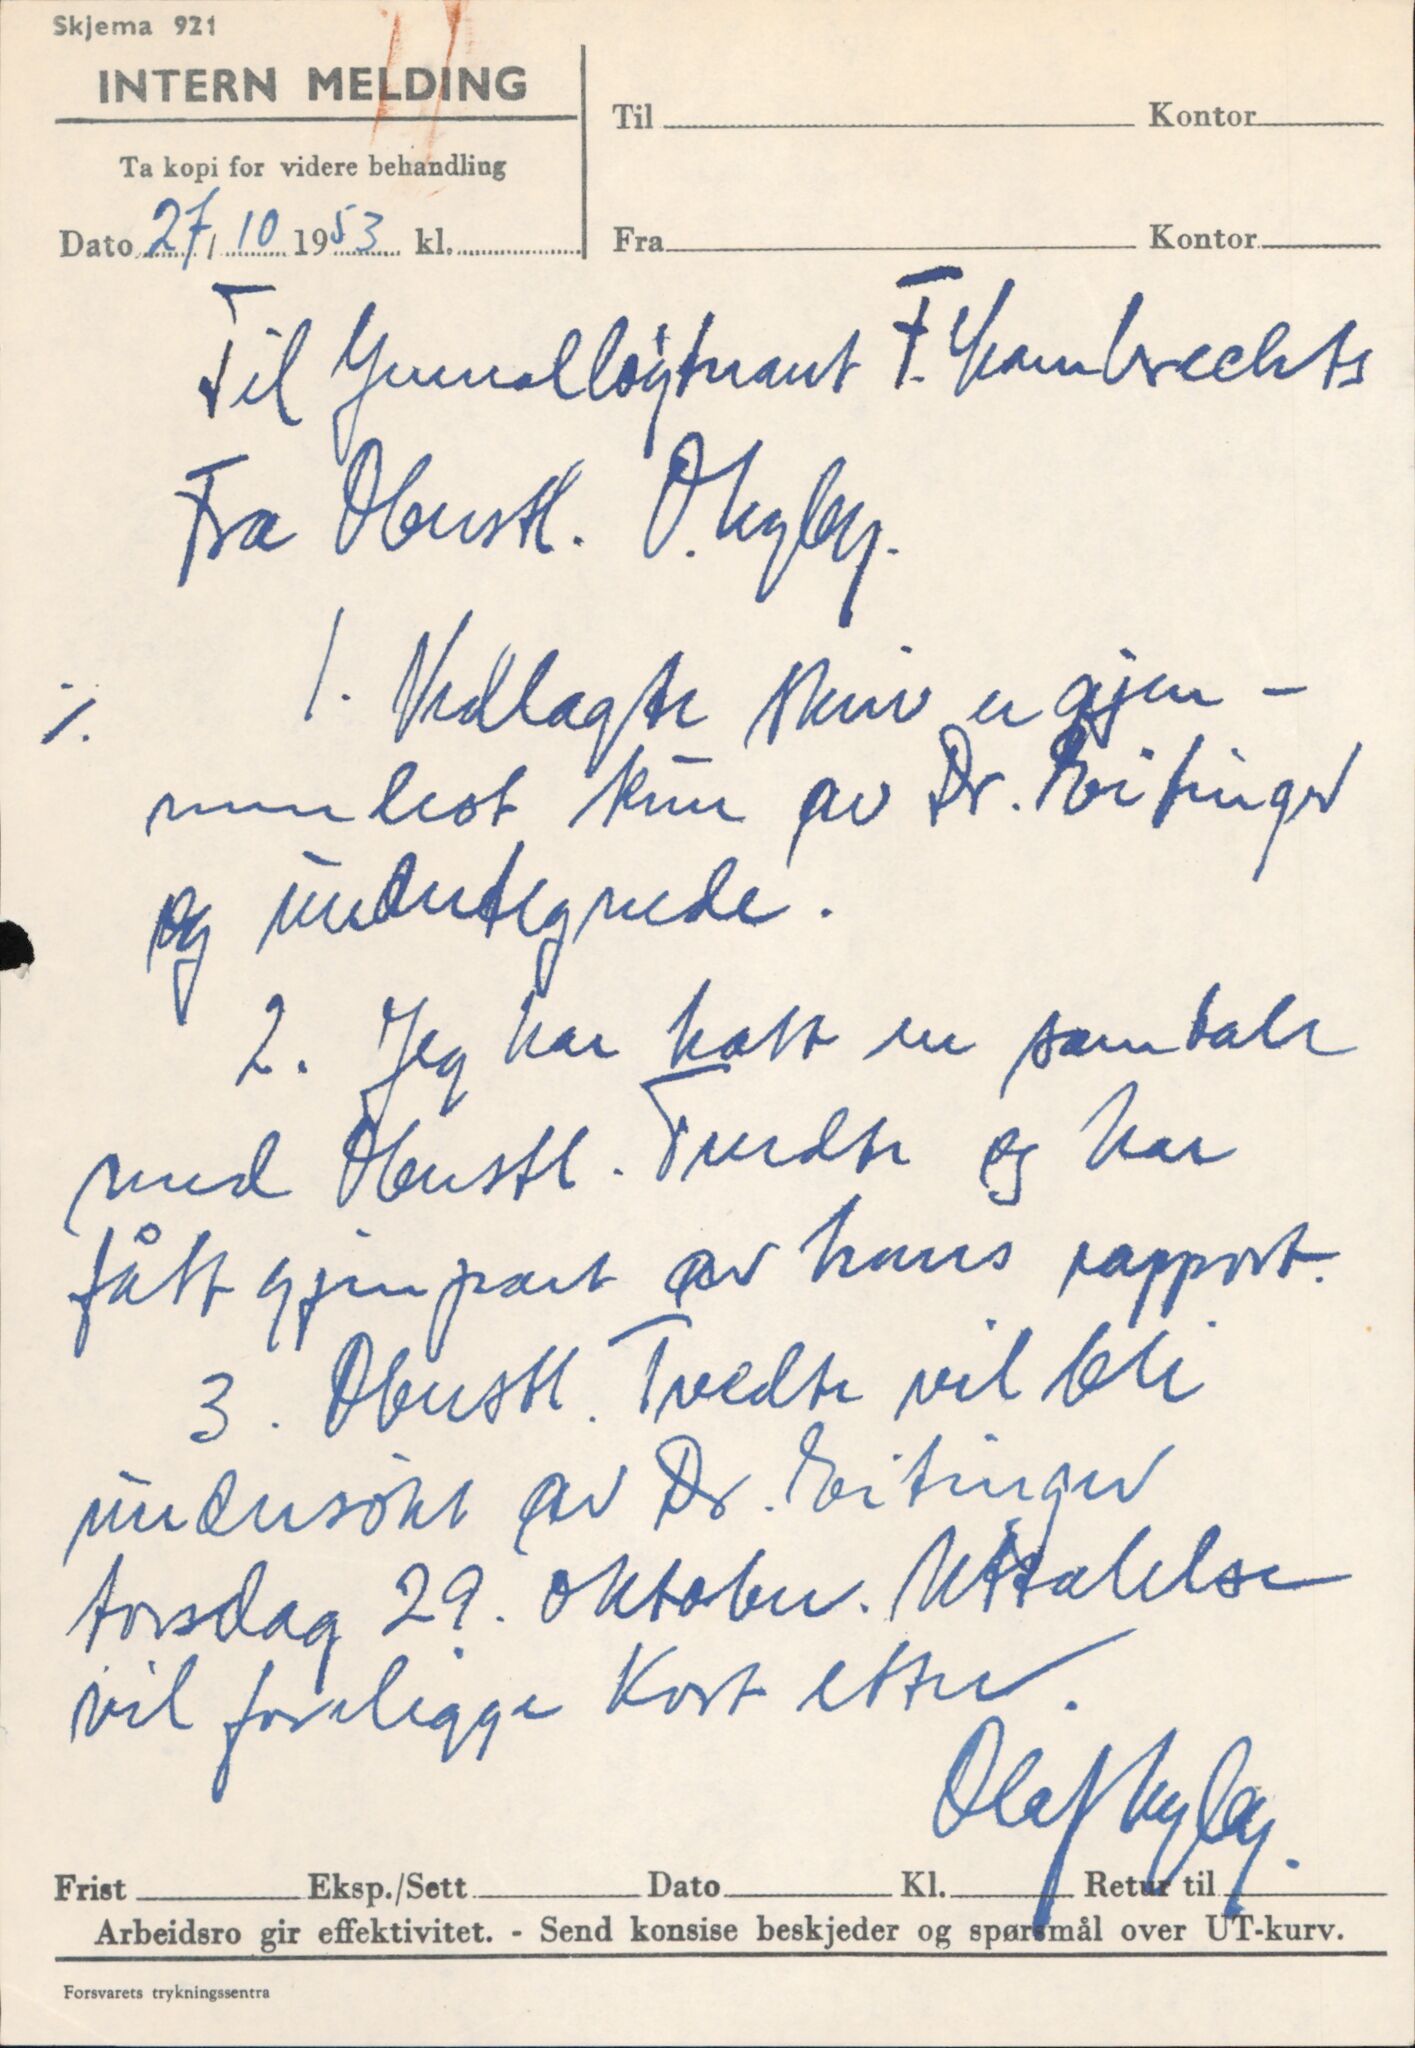 Skjema 921
INTERN MELDING
Ta kopi for videre behandling
Dato 27/ 10 1953 kl.
Til Kontor
Fra Kontor
Til Generalløytnant F. Lambrechts
Fra Oberstl. O. Kyllby.
·/. 1. Vedlagte skriv er gjen-
nomlest kun av Dr. Eitinger
og undertegnede.
2. Jeg har hatt en samtale
med Oberstl. Tvedte og har
fått gjenpart av hans rapport.
3. Oberstl. Tvedte vil bli
undersøkt av Dr. Eitinger
torsdag 29. oktober. Uttalelse
vil foreligge kort etter.
Olaf
Frist Eksp./Sett Dato Kl. Retur til
Arbeidsro gir effektivitet. - Send konsise beskjeder og spørsmål over UT-kurv.
Forsvarets trykningssentra